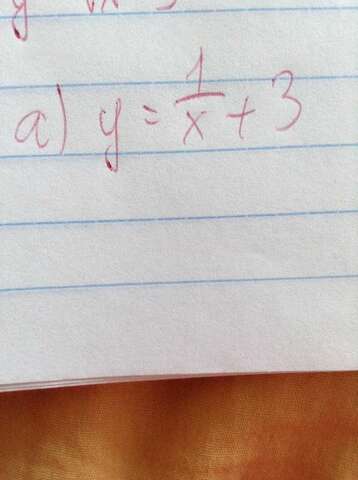 a) y = 1/x + 3